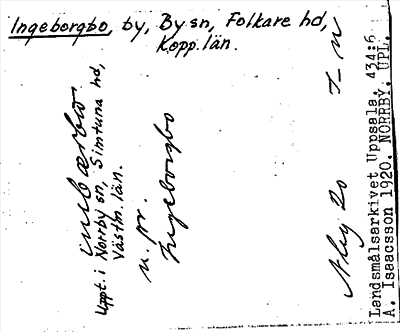 Ingeborgbo, by, By sn, Folkare hd,
Kopp. län.
Uppt. i Norrby sn, Simtuna hd,
Västm. län.
u. pr.
Ingeborgbo
Landsmålsarkivet Uppsala. 434:6
A. Isaacsson 1920. NORRBY. UPL.